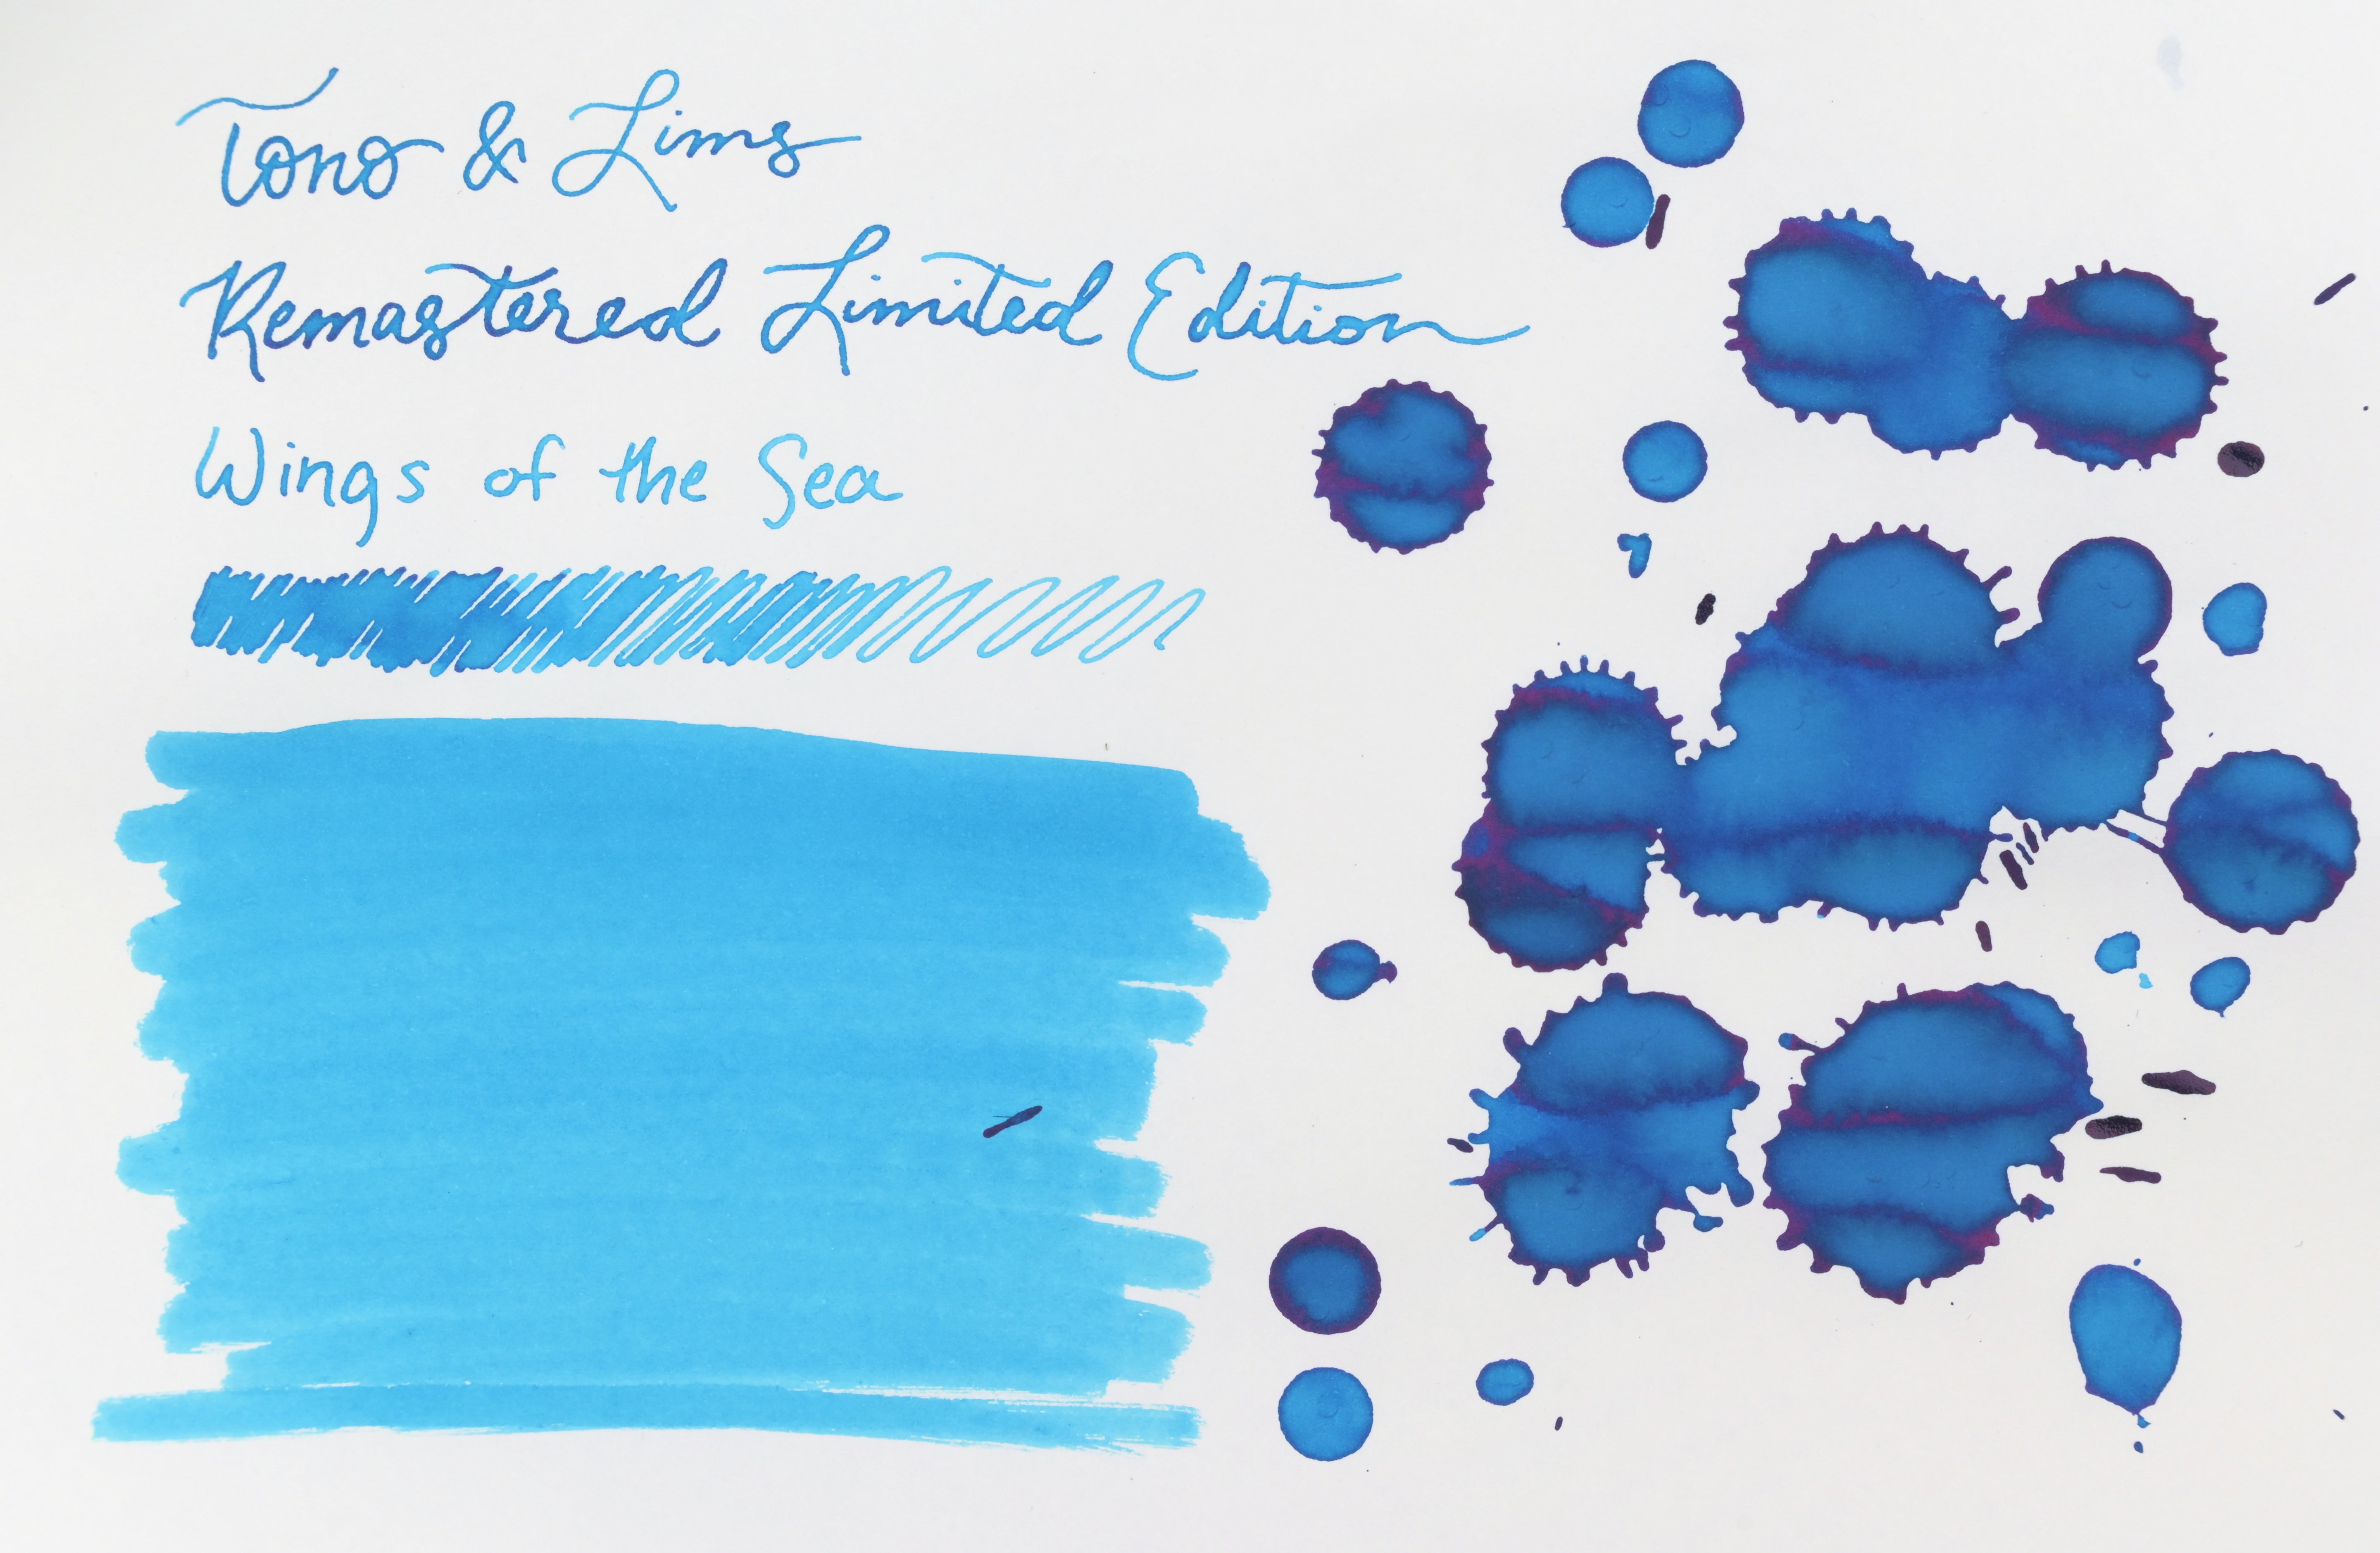 Tono & Lims
Remastered Limited Edition
Wings of the Sea